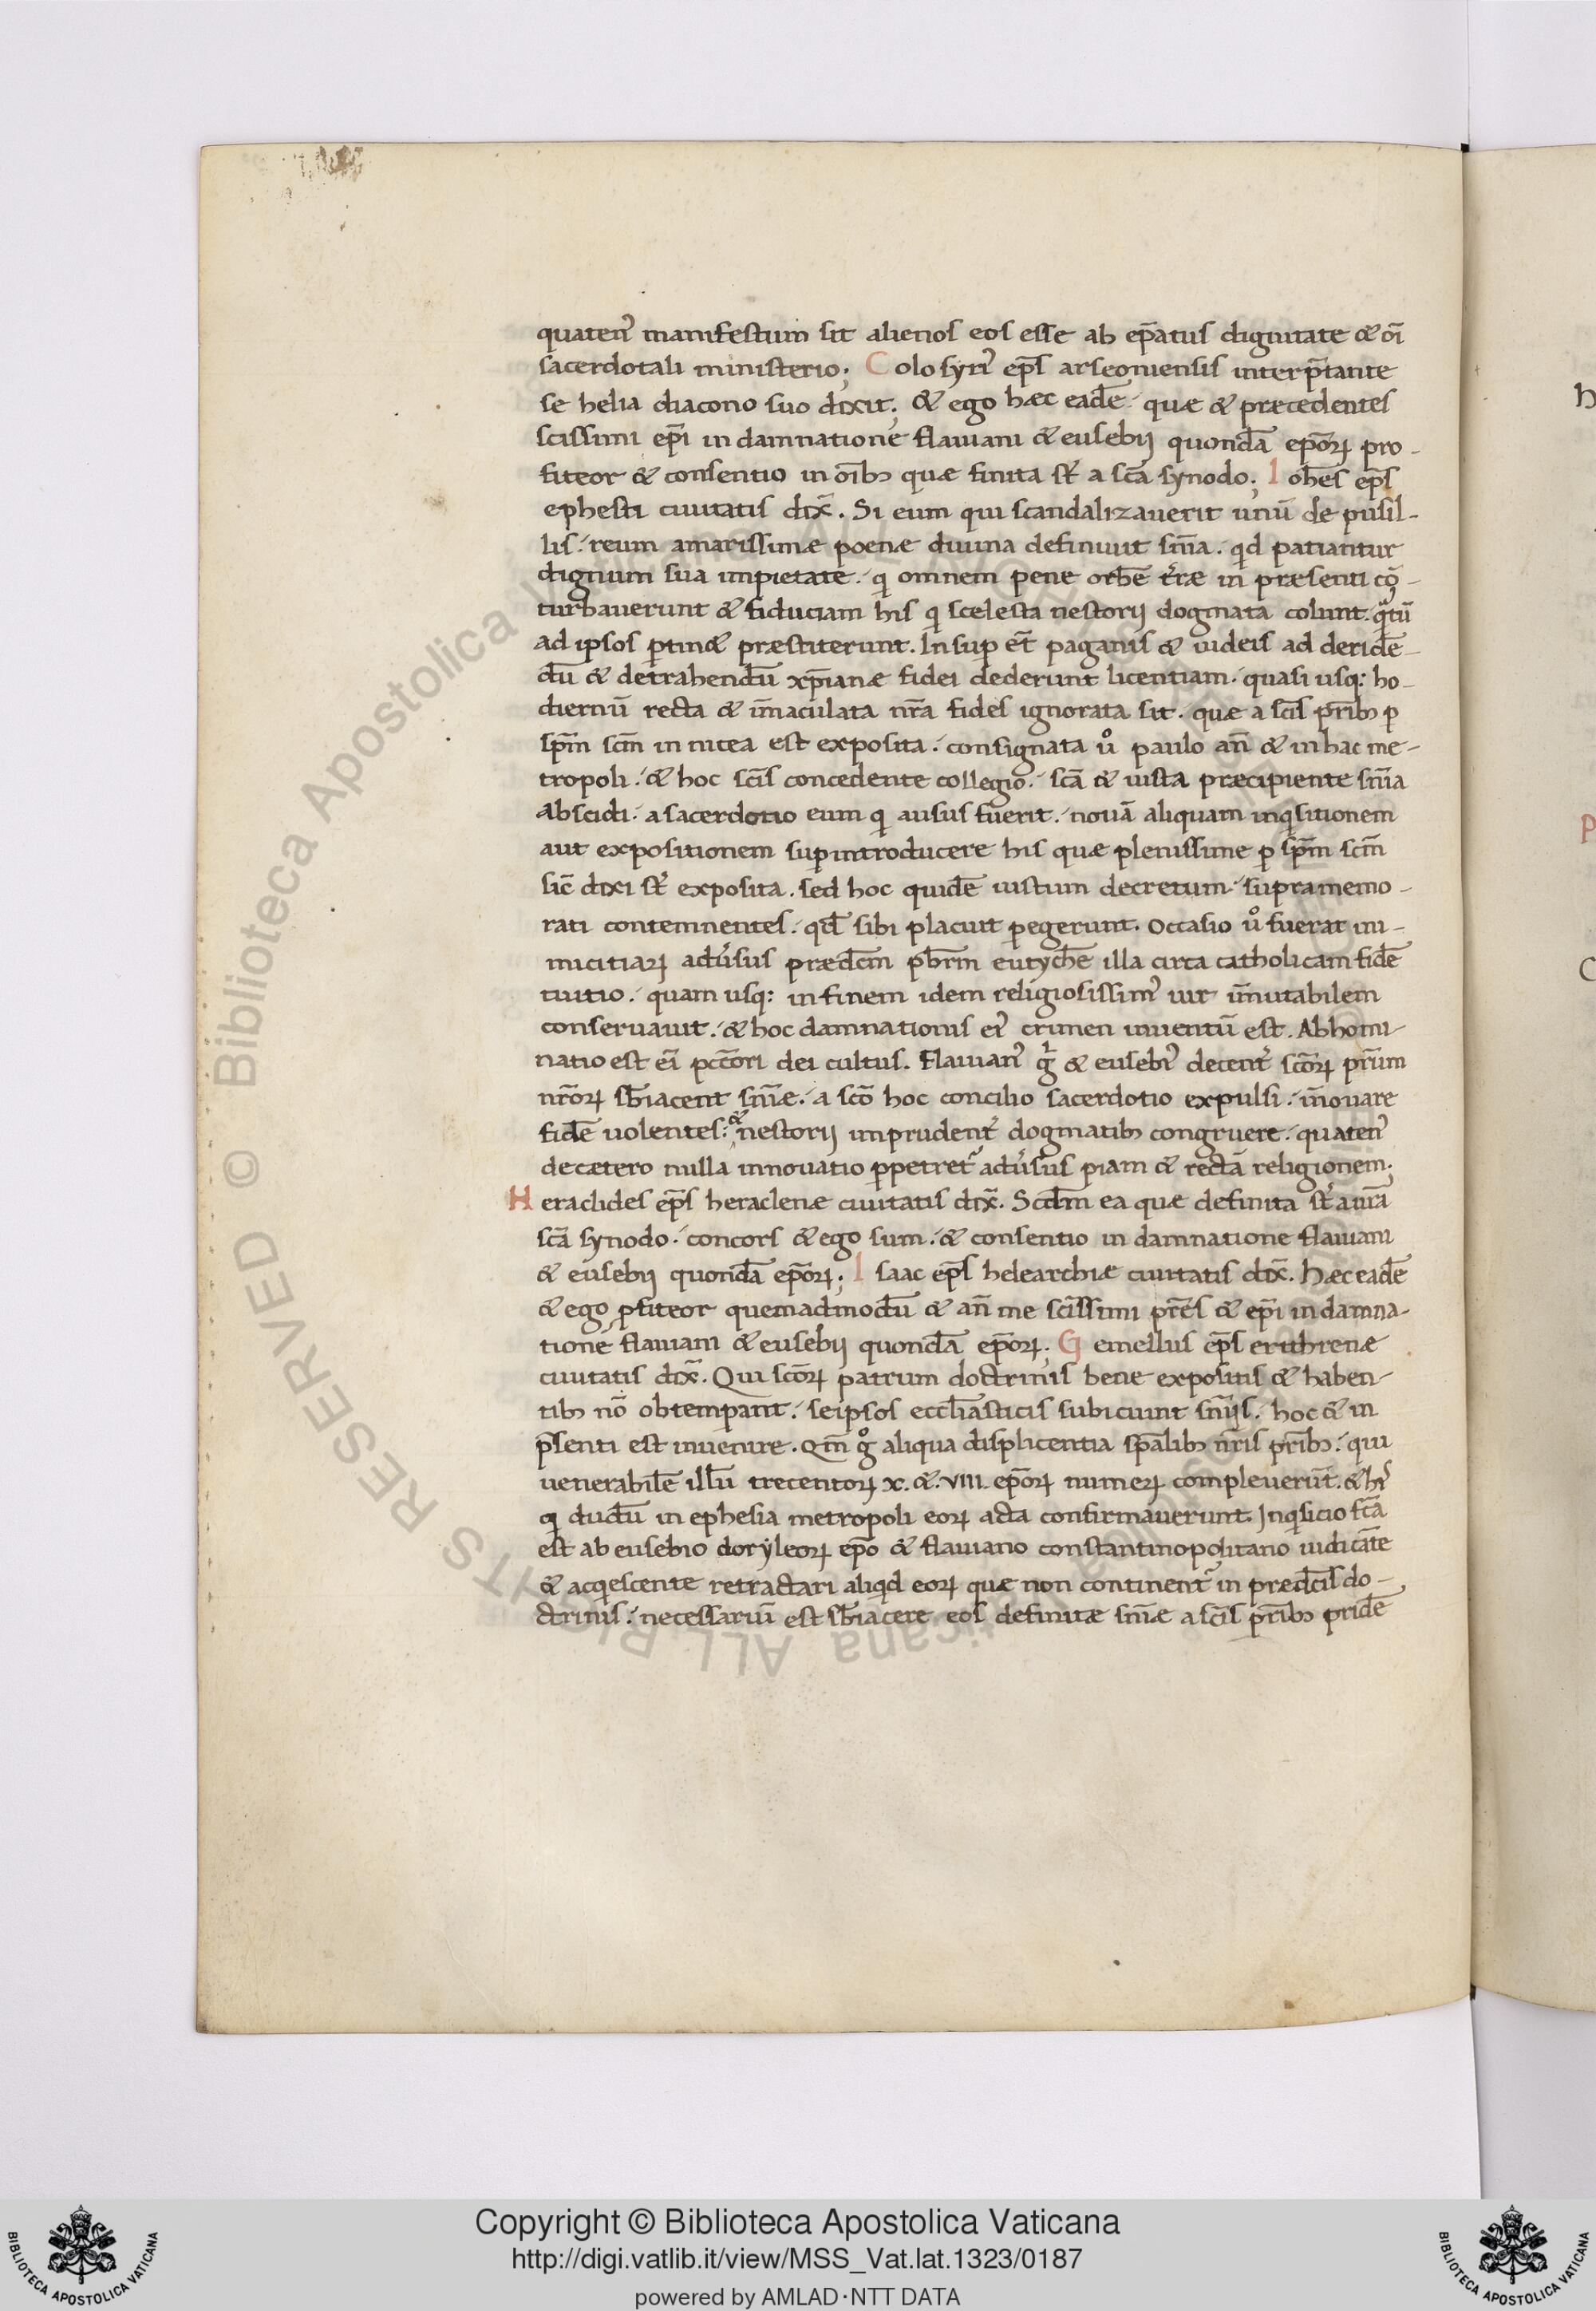 quaten᾽ manifestum sit alienos eos esse ab ep̄atus dignitate & oı̄
sacerdotali ministerio; Colosyri᾽ ep̄s arseoniensis interp̄tante
se helia diacono suo dixit; & ego hæc eadē. quæ & præcedentes
sc̄issimi ep̄i in damnatione flauiani & eusebij quondā ep̄oꝝ pro-
fiteor & consentio in oı̄bꝫ quæ finita st̄ a sc̄a synodo; Ioh̄es ep̄s
ephesti ciuitatis dix̄. Si eum qui scandalizauerit unū de pusil-
lis. reum amarissimæ poenæ diuina definiuit sn̄ia. qd patiantur
dignum sua impietate. qi omnem pene orbē t᾽ræ in præsenti cō-
turbauerunt & fiduciam his qi scelesta nestorij dogmata colunt. qᵃtū
ad ipsos ꝑtin& præstiterunt. Insuꝑ et̄ paganis & iudeis ad deridē-
dū & detrahendū xp̄ianæ fidei dederunt licentiam. quasi usqꝫ ho-
diernū recta & im̄aculata nr̄a fides ignorata sit. quæ a sc̄is pr̄ibꝫ ꝑ
sp̄m sc̄m in nicea est exposita. consignata uͦ paulo an̄ & in hac me-
tropoli. & hoc sc̄is concedente collegio. sc̄a & iusta præcipiente sn̄ia
abscidi. a sacerdotio eum qi ausus fuerit. nouā aliquam inqisitionem
aut expositionem suꝑintroducere his quæ plenissime ꝑ sp̄m sc̄m
sic̄ dixi st̄ exposita. sed hoc quidē iustum decretum. supramemo-
rati contemnentes. qd̄ sibi placuit ꝑegerunt. Occasio uͦ fuerat ini-
micitiaꝝ adu᾽sus præd̄cm pb̄rm eutychē illa circa catholicam fidē
tuitio. quam usqꝫ in finem idem religiosissim᾽ uir im̄utabilem
conseruauit. & hoc damnationis ei᾽ crimen inuentū est. Abhomi-
natio est eı̄ pcc̄ori dei cultus. Flauian᾽ gͥ & eusebi᾽ decent᾽ sc̄oꝝ pr̄um
nr̄oꝝ sb̄iacent sn̄iæ. a sc̄o hoc concilio sacerdotio expulsi. in̄ouare
fidē uolentes. & nestorij imprudent᾽ dogmatibꝫ congruere. quaten᾽
decætero nulla innouatio ꝑpetret᾽ adu᾽sus piam & rectā religionem;
Heraclides ep̄s heraclenæ ciuitatis dix̄. Scd̄m ea quæ definita st̄ a ur̄a
sc̄a synodo. concors & ego sum. & consentio in damnatione flauiani
& eusebij quondā ep̄oꝝ; Isaac ep̄s helearchiæ ciuitatis dix̄. Hæc eadē
& ego ꝓfiteor quemadmodū & an̄ me sc̄issimi pr̄es & ep̄i in damna-
tione flauiani & eusebij quondā ep̄oꝝ; Gemellus ep̄s erithrenæ
ciuitatis dix̄. Qui sc̄oꝝ patrum doctrinis bene expositis & haben-
tibꝫ nō obtemꝑant. seipsos eccl̄iasticis subiciunt sn̄ijs. hoc & in
p̄senti est inuenire. Qm̄ gͦ aliqua displicentia sp̄alibꝫ nr̄is pr̄ibꝫ. qui
uenerabilē illū trecentoꝝ x. &. viii. ep̄oꝝ numeꝝ compleuerūt. & hi᾽
qi dudū in ephesia metropoli eoꝝ acta confirmauerunt. Inqisicio fc̄a
est ab eusebio doryleoꝝ ep̄o & flauiano constantinopolitano iudicāte
& acqiescente retractari aliqid eoꝝ quæ non continent᾽ in præd̄cis do-
ctrinis. necessariū est sb̄iacere eos definitæ sn̄iæ a sc̄is pr̄ibꝫ pridē
Copyright © Biblioteca Apostolica Vaticana
http://digi.vatlib.it/view/MSS_Vat.lat.1323/0187
powered by AMLAD·NTT DATA